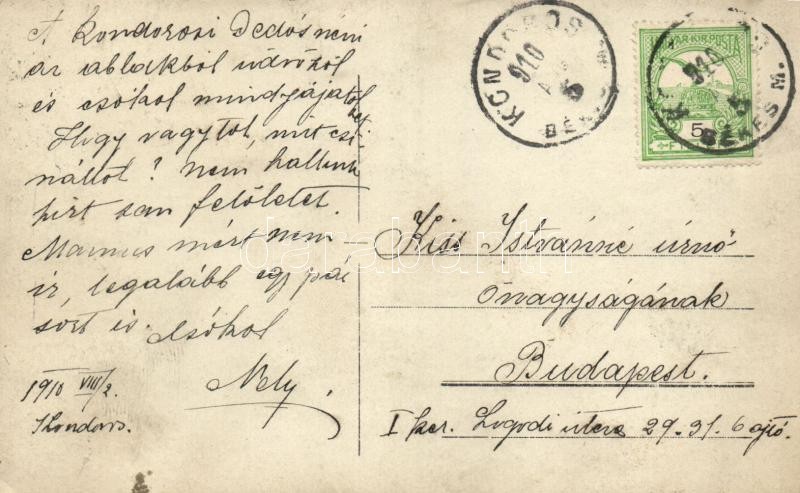 A Kondorosi Dedósnéni
az ablakból üdvözöl
és csókol mindyájatok
Hogy vagytok, mit csi-
náltok? nem hallunk
hirt san felőletek.
Mamus mért nem
ir, legalább egy pár
sort is. Csókol
Nely.
1910 VIII/2.
Kondoros.
KONDOROS
910
BÉKÉS M.
MAGYAR KIR. POSTA
5
910
BÉKÉS M.
Kiss Istvánné úrnő
Őnagyságának
Budapest.
I ker. Logodi utcza 29-31. 6 ajtó.
darabanth